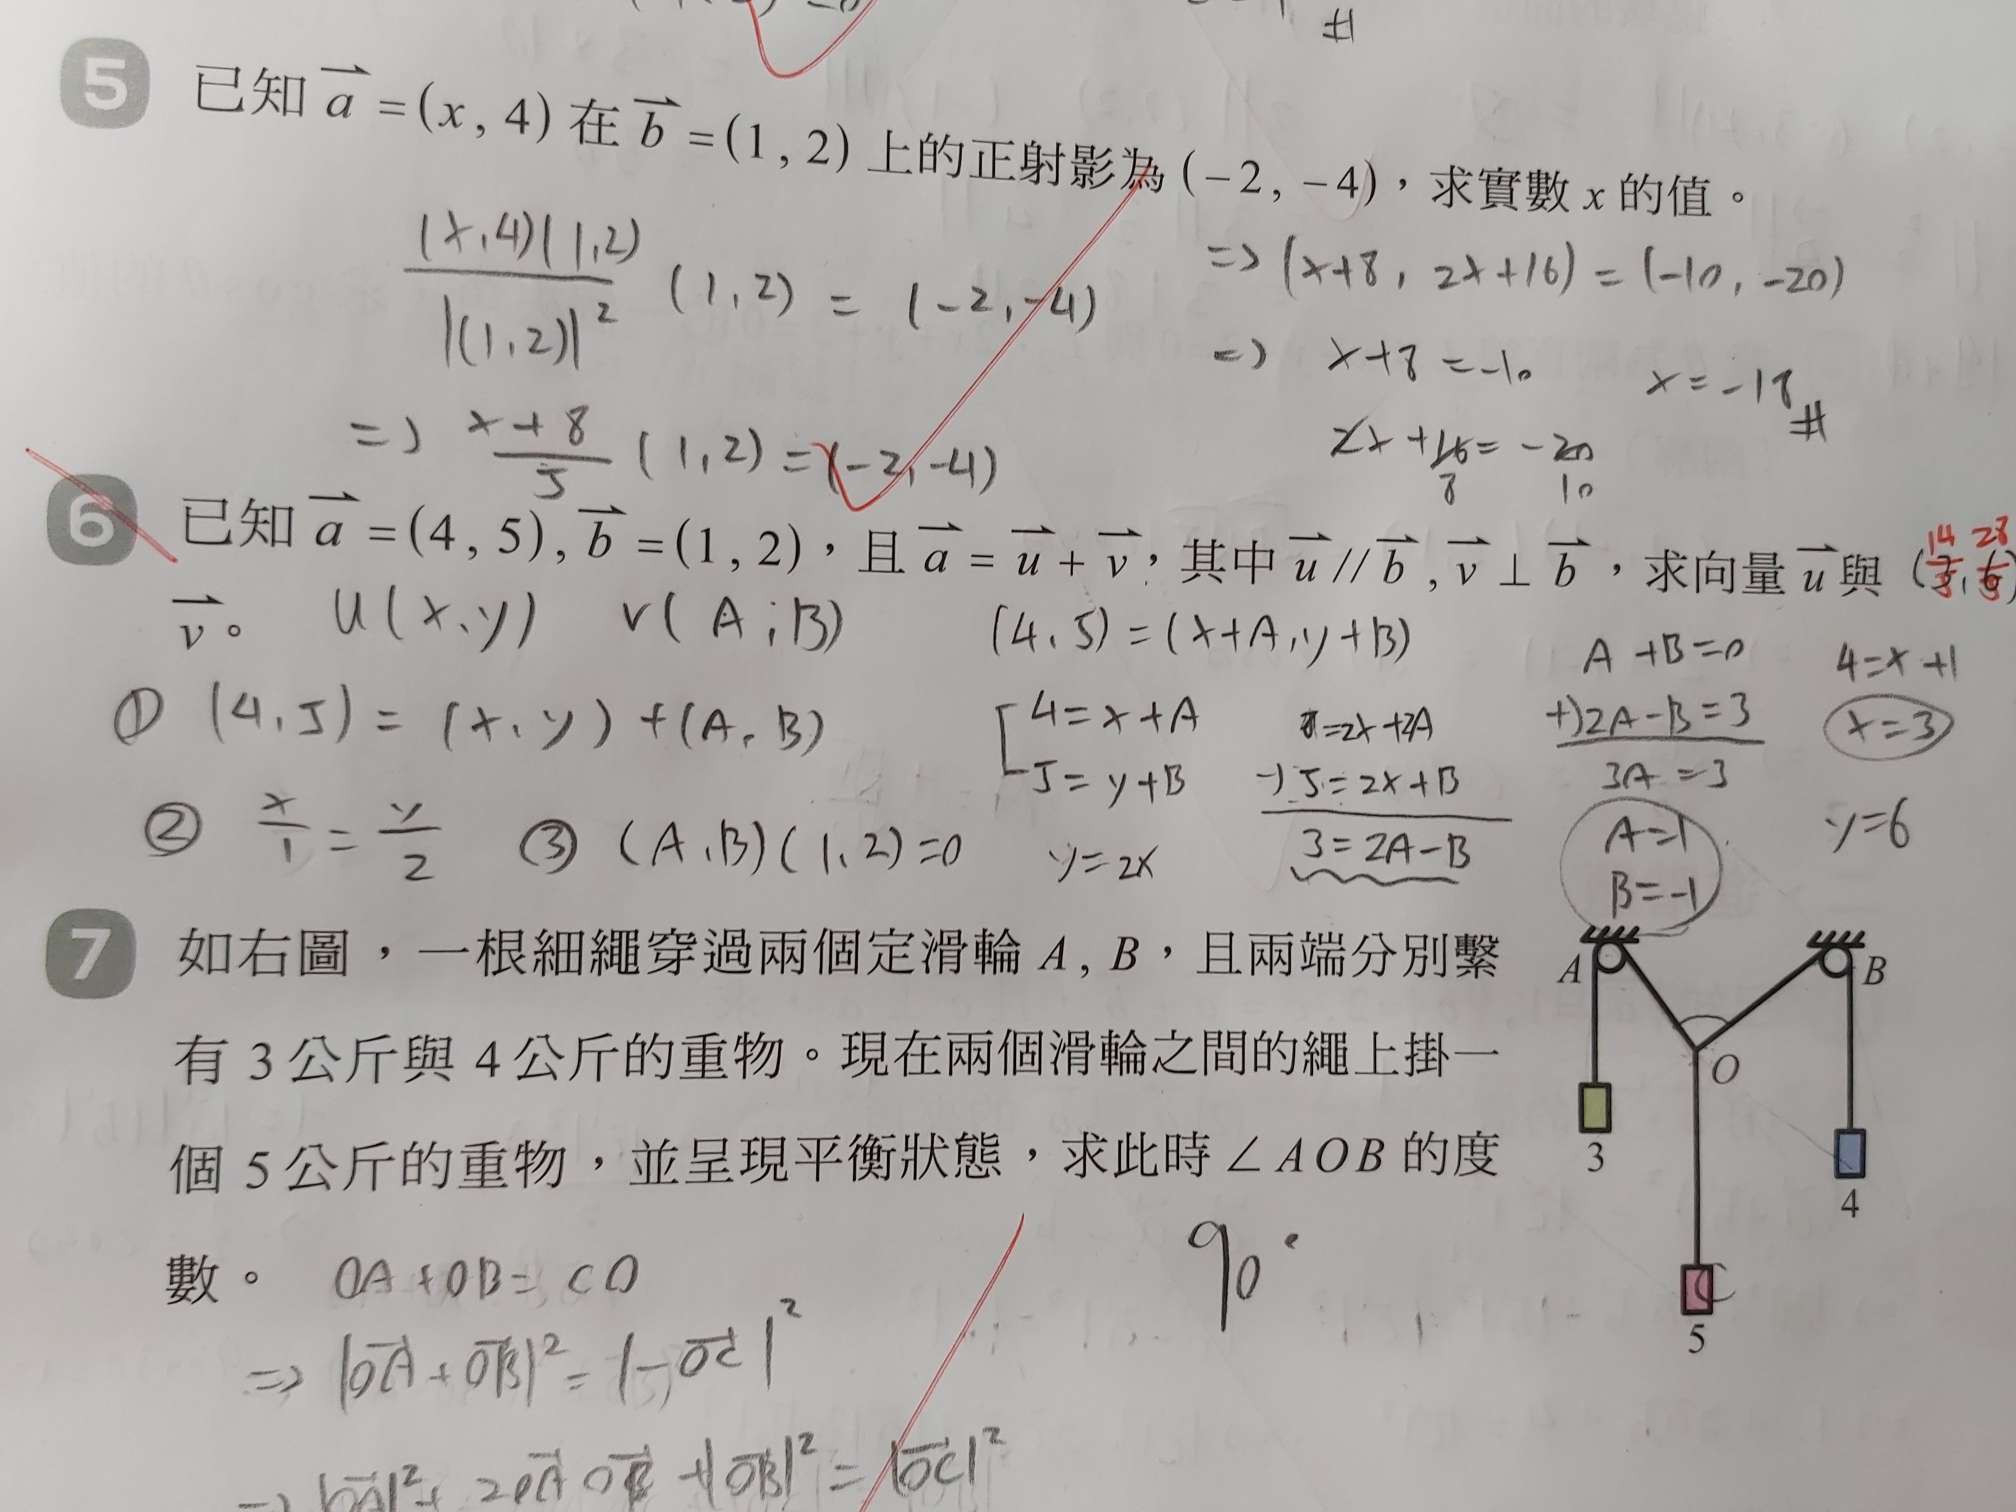 #
5 已知 a = (x, 4) 在 b = (1, 2) 上的正射影為 (-2, -4)，求實數 x 的值。
(x,4)(1,2) / |(1,2)|² (1,2) = (-2,-4)
=> (x+8)/5 (1,2) = (-2,-4)
=> (x+8, 2x+16) = (-10, -20)
=> x+8 = -10 x = -18 #
2x+16 = -20
8 10
6 已知 a = (4, 5), b = (1, 2)，且 a = u + v，其中 u // b, v ⊥ b，求向量 u 與
v。
14 28
u(x,y) v(A,B)
① (4,5) = (x,y)+(A,B)
② x/1 = y/2 ③ (A,B)(1,2)=0
(4,5)=(x+A,y+B)
4=x+A
5=y+B
y=2x
8=2x+2A
-) 5=2x+B
3=2A-B
A+B=0
+) 2A-B=3
3A=3
A=1
B=-1
4=x+1
x=3
y=6
7 如右圖，一根細繩穿過兩個定滑輪 A, B，且兩端分別繫
有 3 公斤與 4 公斤的重物。現在兩個滑輪之間的繩上掛一
個 5 公斤的重物，並呈現平衡狀態，求此時 ∠AOB 的度
數。
A B
O
3
4
C
5
OA+OB=CO
90°
=> |OA+OB|² = |-OC|²
=> |OA|²+2OA OB+|OB|² = |OC|²